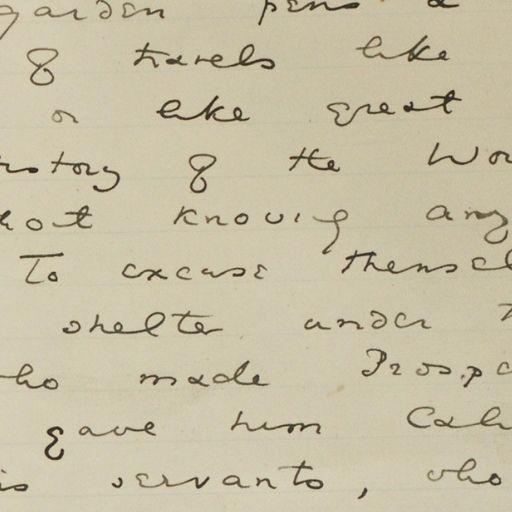 garden pens a
of travels like
or like great
history of the Wor
not knowing any
To excuse themsel
shelter under t
who made Prosp
gave him Cal
is servants, who